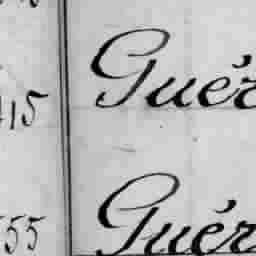 415 Guér
555 Guér